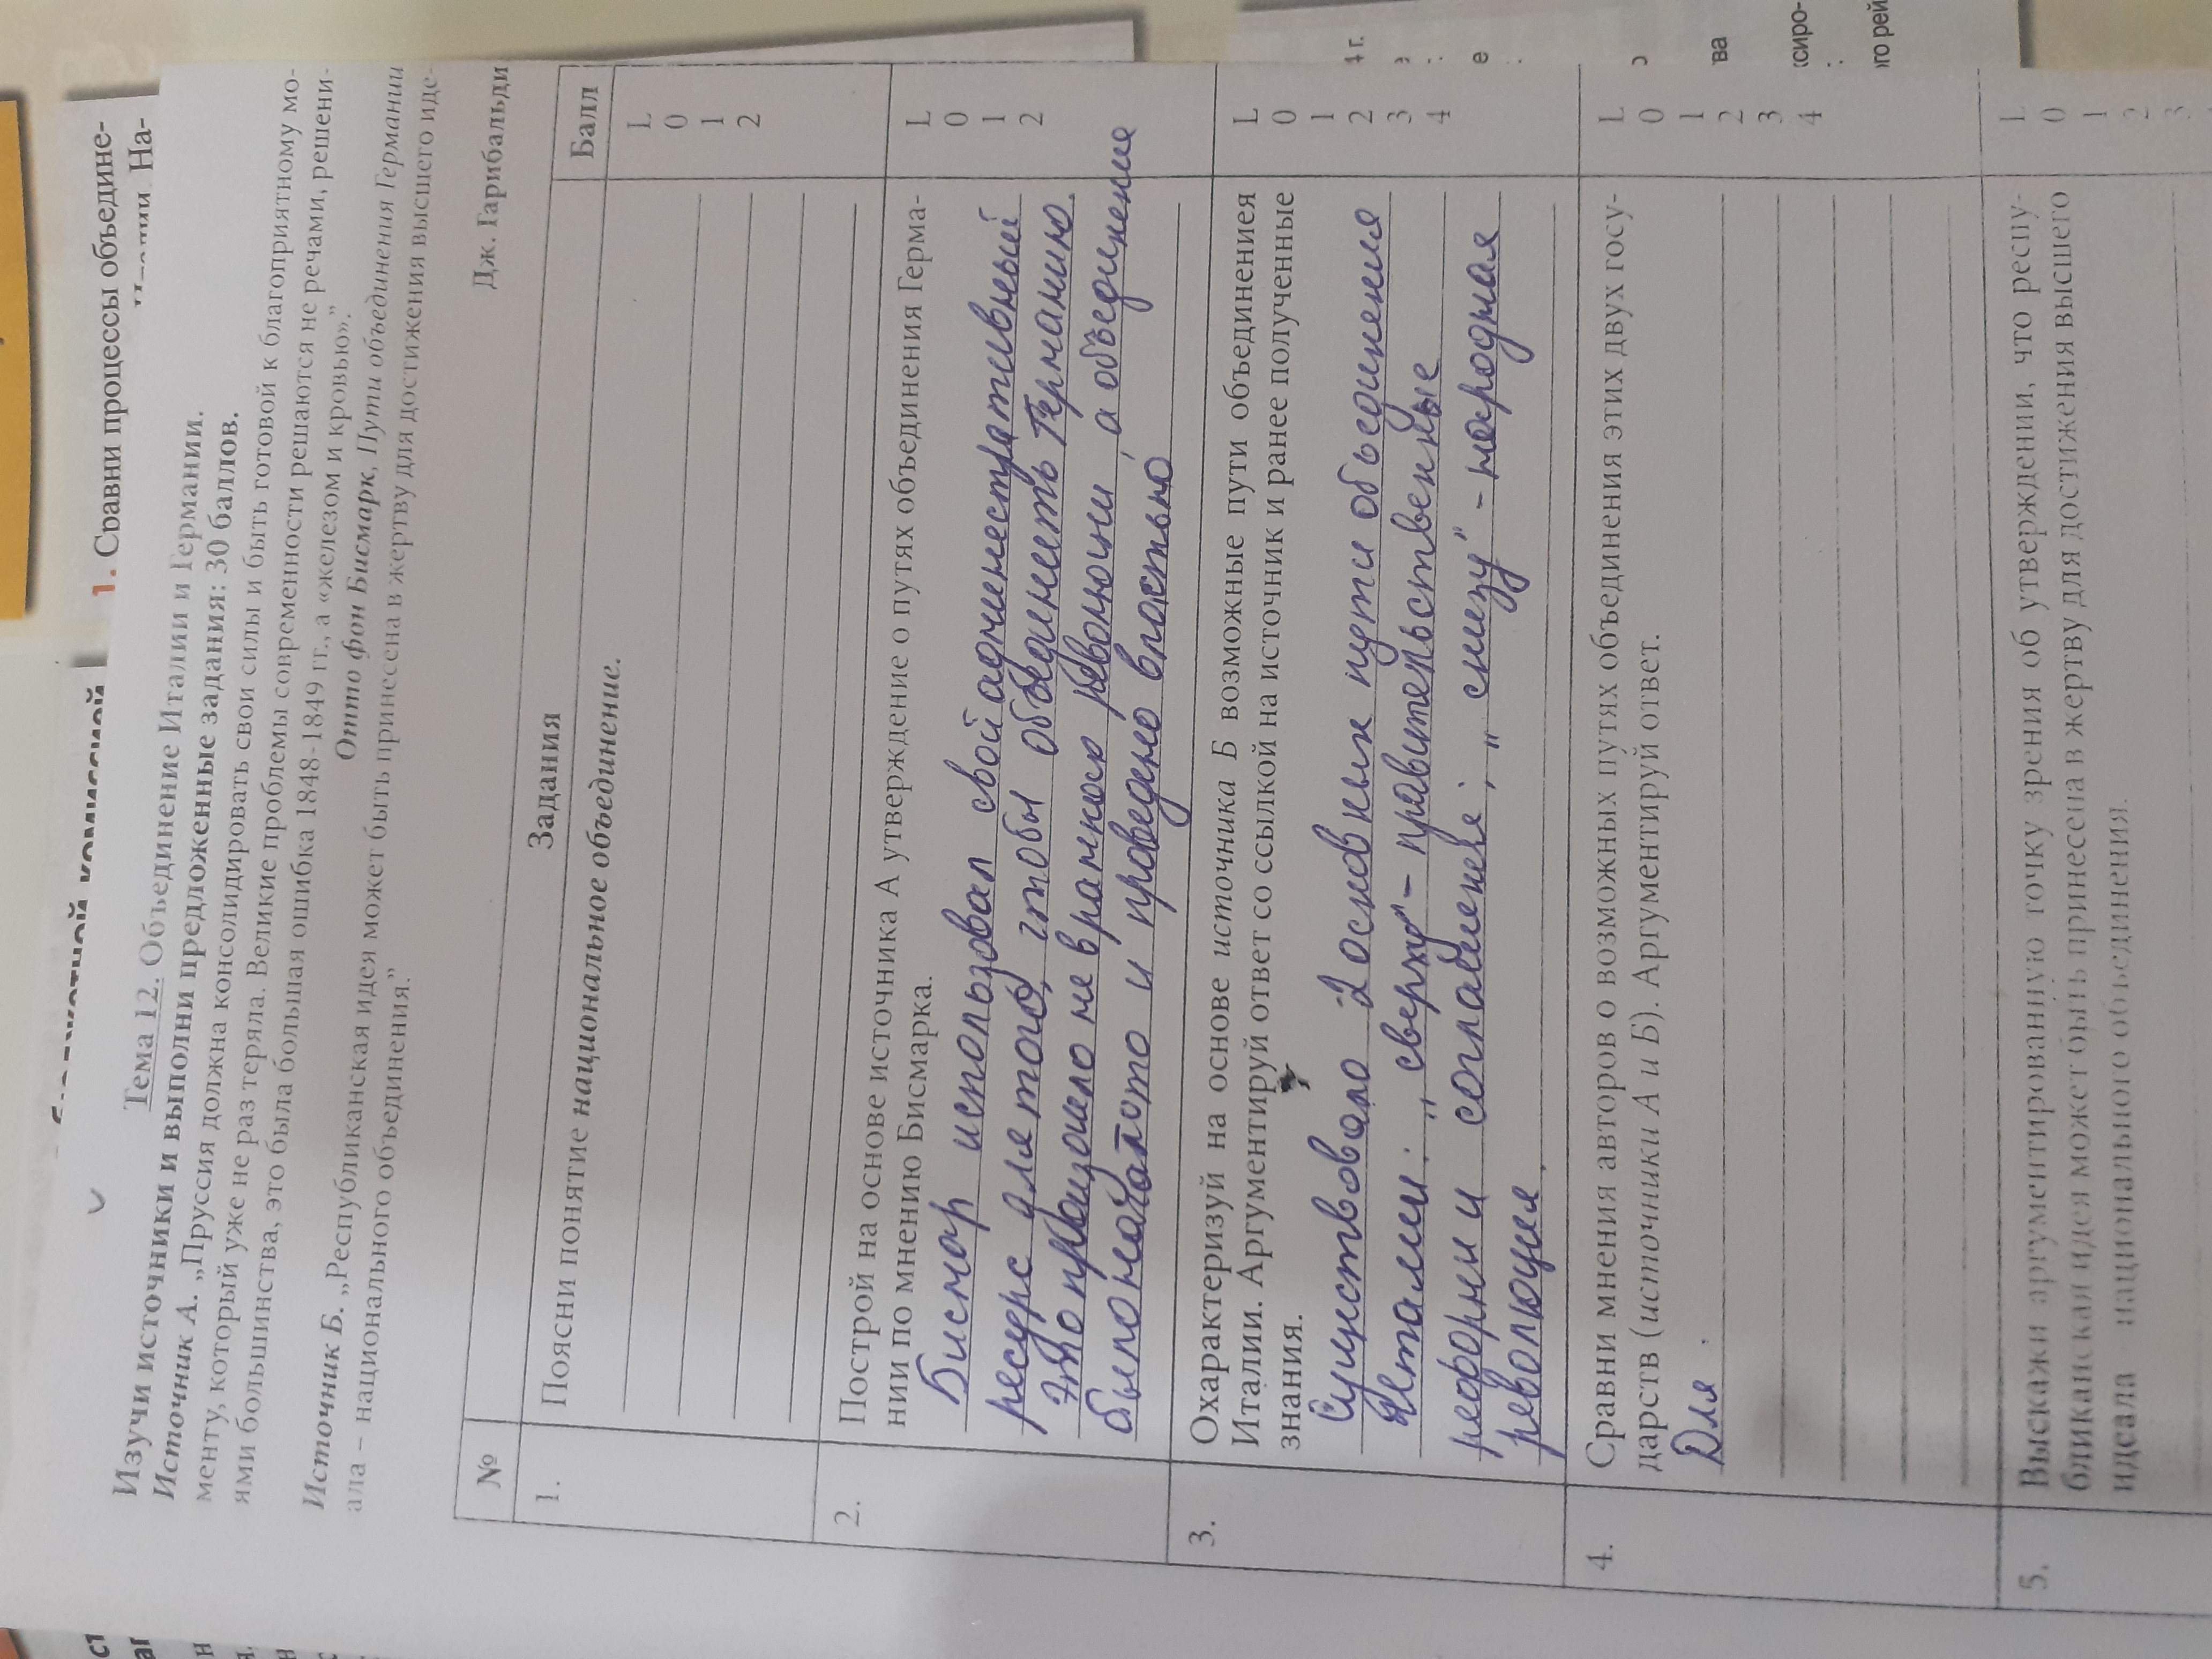 1. Сравни процессы объедине-
Тема 12. Объединение Италии и Германии.
Изучи источники и выполни предложенные задания: 30 баллов.
Источник А. „Пруссия должна консолидировать свои силы и быть готовой к благоприятному мо-
менту, который уже не раз теряла. Великие проблемы современности решаются не речами, решени-
ями большинства, это была большая ошибка 1848-1849 гг., а «железом и кровью»."
Отто фон Бисмарк, Пути объединения Германии
Источник Б. „Республиканская идея может быть принесена в жертву для достижения высшего иде-
ала – национального объединения."
Дж. Гарибальди
№ Задания Балл
1. Поясни понятие национальное объединение.
L
0
1
2
2. Построй на основе источника А утверждение о путях объединения Герма-
нии по мнению Бисмарка.
Бисмар использовал свой админестративный
ресурс для того, чтобы объединить Германию.
Это произошло не в рамках революции, а объединение
было начато и проведено властью
L
0
1
2
3. Охарактеризуй на основе источника Б возможные пути объединения
Италии. Аргументируй ответ со ссылкой на источник и ранее полученные
знания.
Существовало 2 основных пути объединения
Италии: „сверху" – правительственные
реформы и соглашения; „снизу" – народная
революция.
L
0
1
2
3
4
4. Сравни мнения авторов о возможных путях объединения этих двух госу-
дарств (источники А и Б). Аргументируй ответ.
Для
L
0
1
2
3
4
5. Выскажи аргументированную точку зрения об утверждении, что респу-
бликанская идея может быть принесена в жертву для достижения высшего
идеала – национального объединения.
L
0
1
2
3